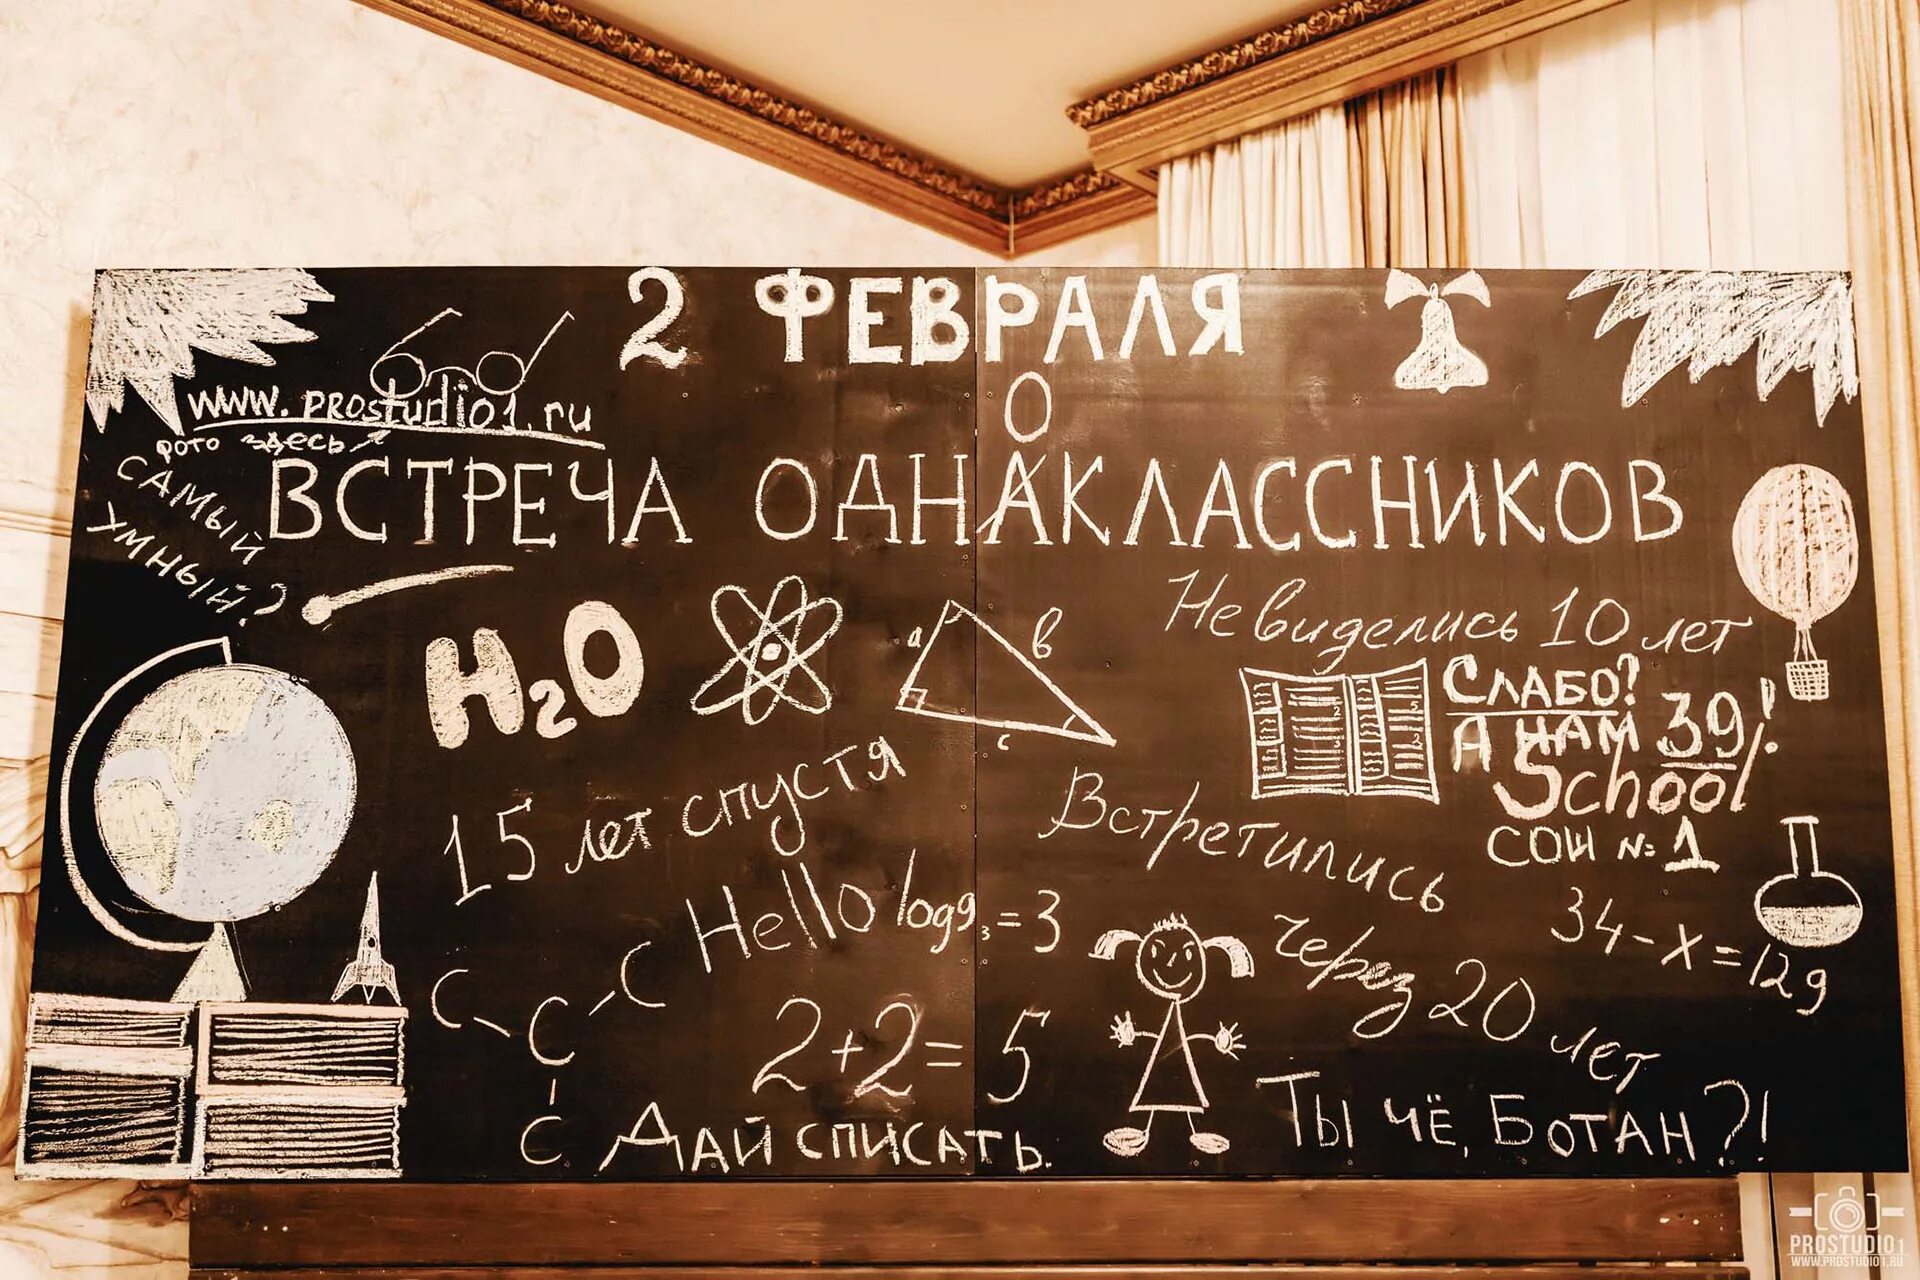 2 ФЕВРАЛЯ
www.prostudio1.ru
фото здесь
О
ВСТРЕЧА ОДНАКЛАССНИКОВ
САМЫЙ
ХМНЫЙ?
H2O
a
b
c
Не виделись 10 лет
СЛАБО?
Я НАМ 39!
School
СОШ №1
15 лет спустя
Встретились
через 20 лет
Hello
log9 3 = 3
34-x=129
C
C
C
C
2+2=5
ДАЙ СПИСАТЬ.
ТЫ ЧЁ, БОТАН?!
PROSTUDIO1
WWW.PROSTUDIO1.RU